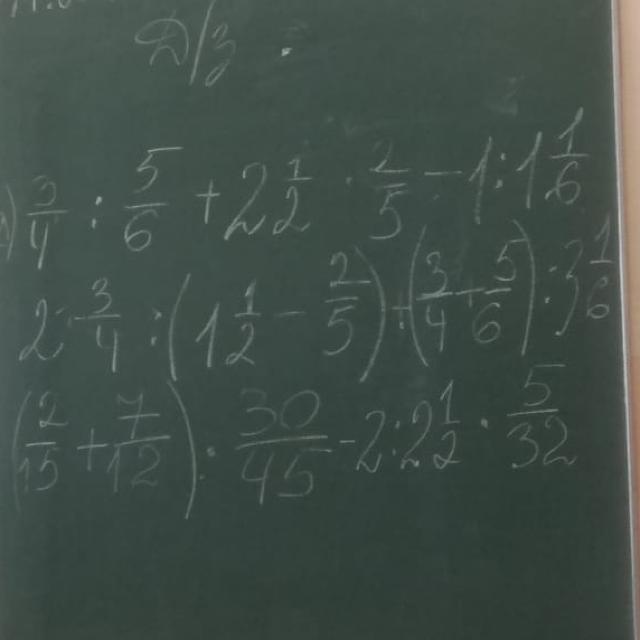 Д/з
3/4 : 5/6 + 2 1/2 · 2/5 - 1 : 1 1/6
2 · 3/4 : (1 1/2 - 2/5) + (3/4 + 5/6) : 3 1/6
(2/15 + 7/12) · 30/45 - 2 : 2 1/2 · 5/32